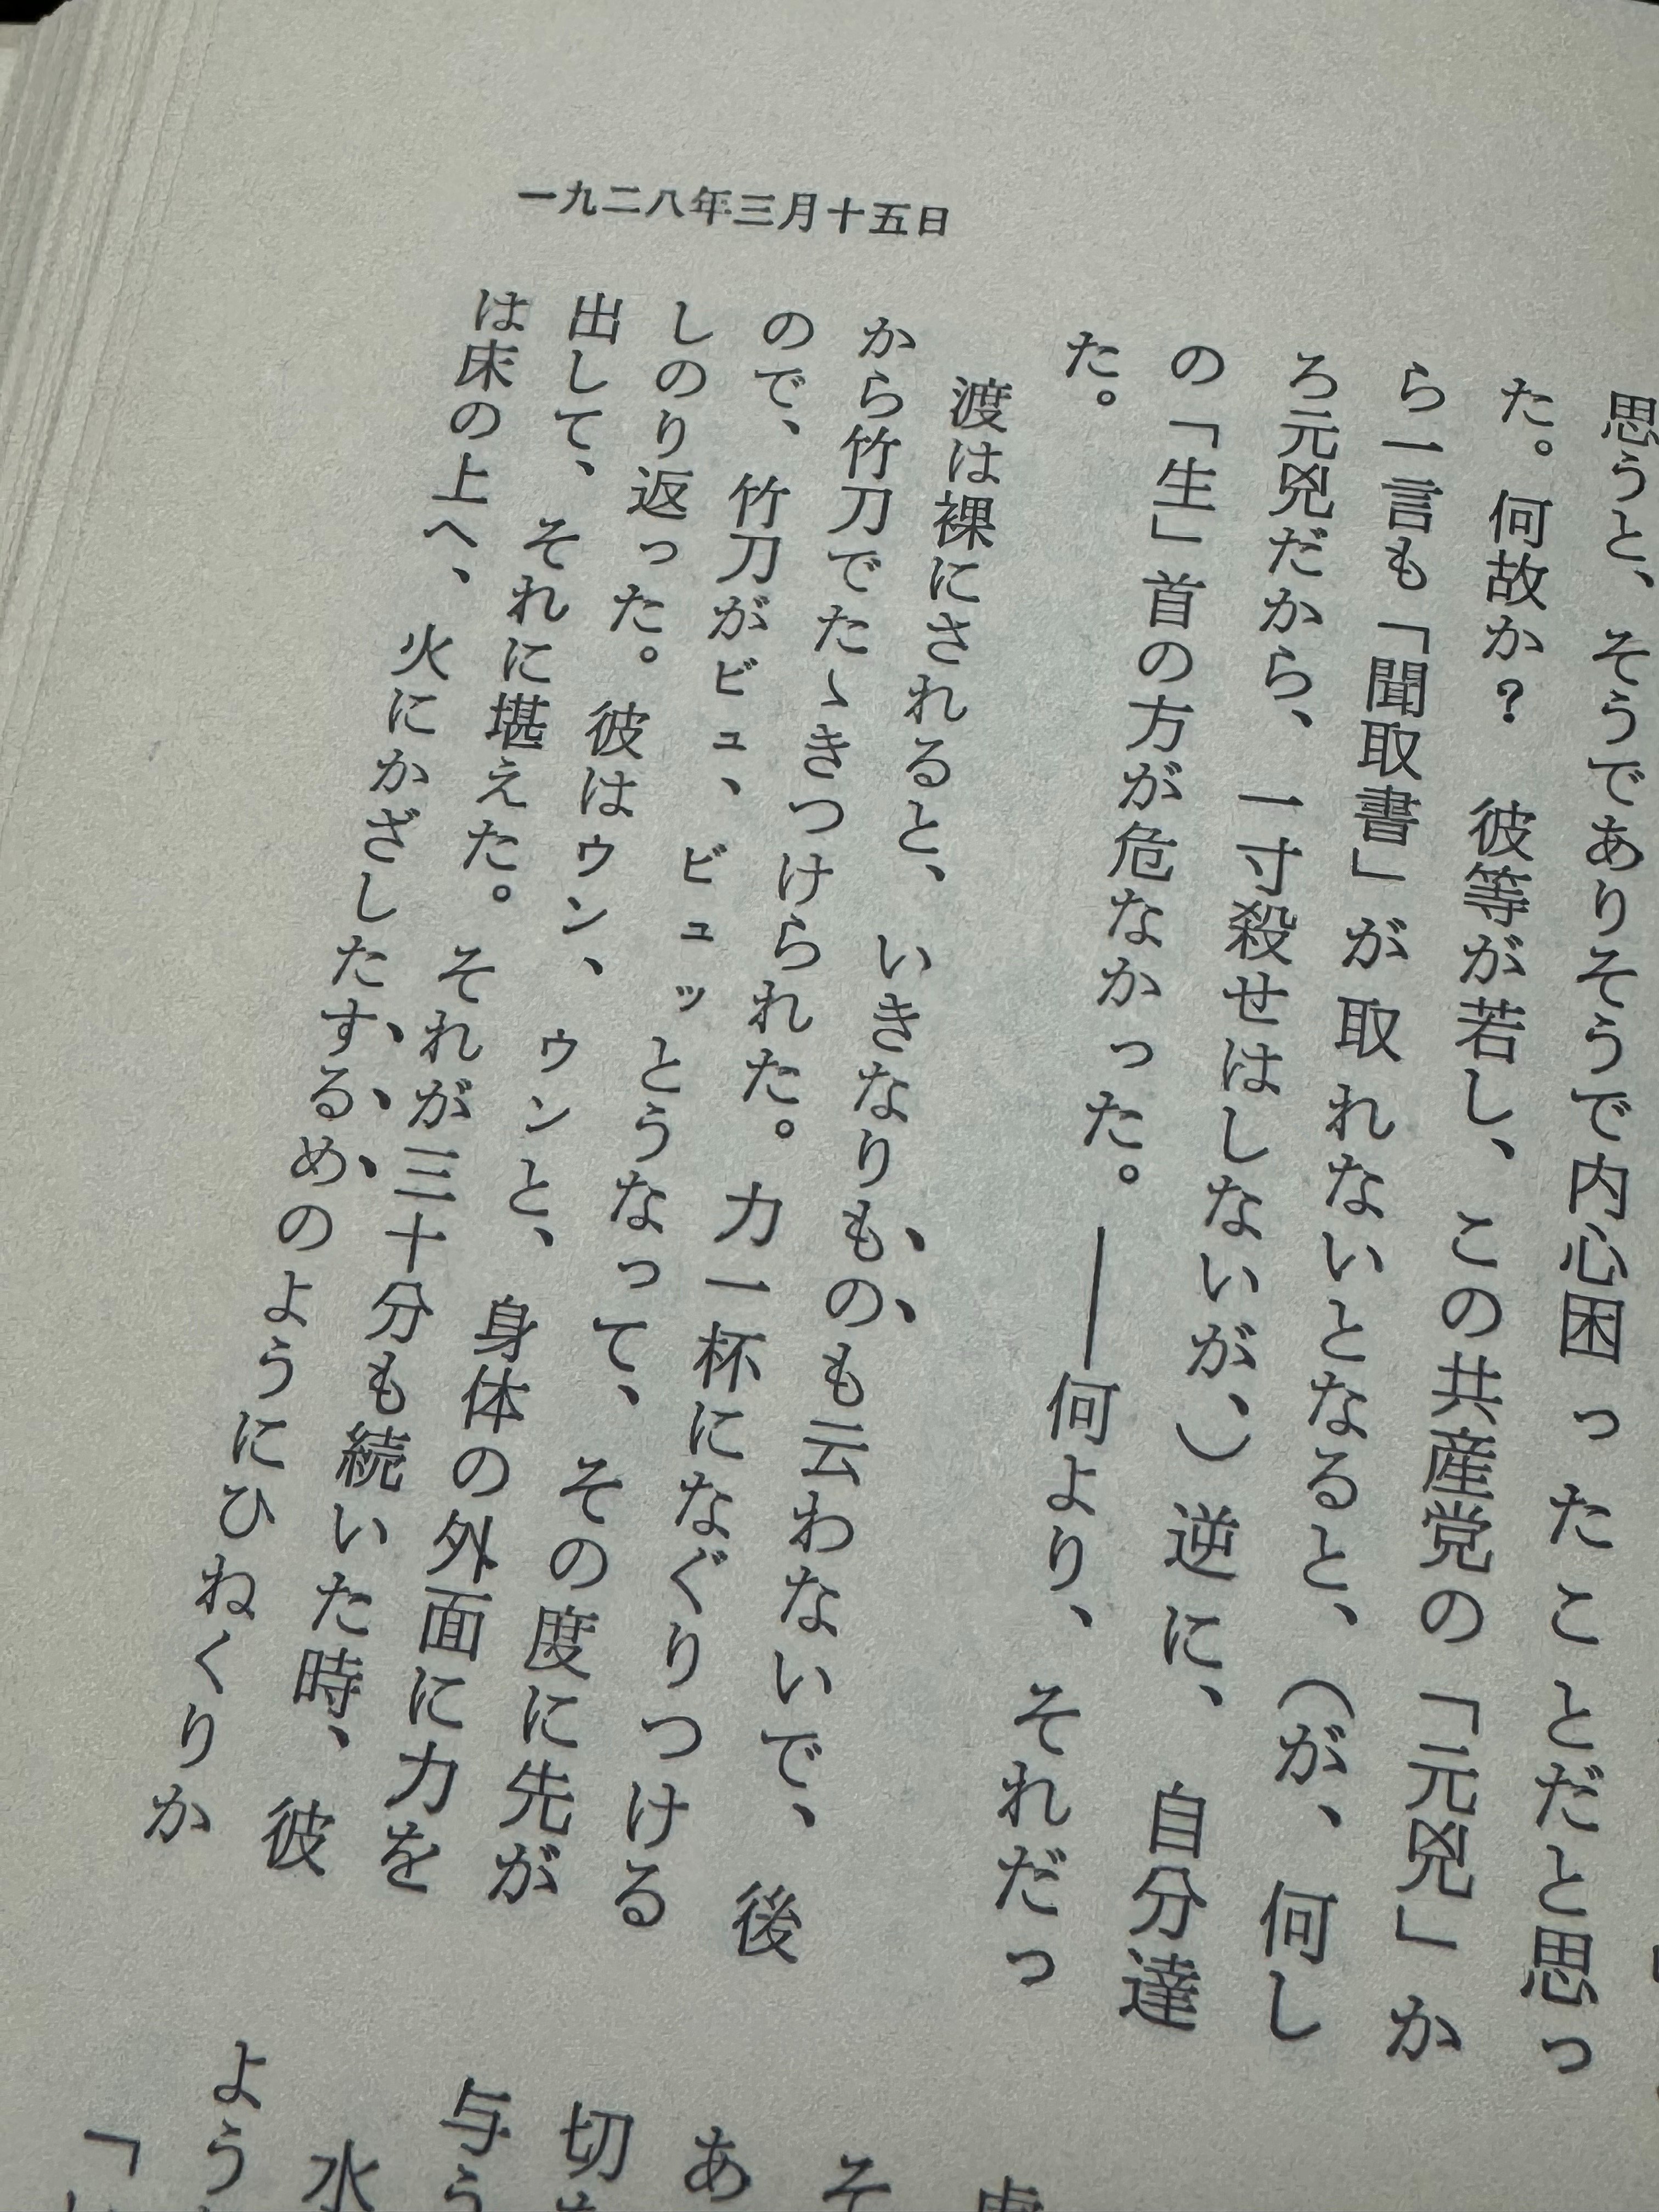 一九二八年三月十五日
思うと、そうでありそうで内心困ったことだと思っ
た。何故か？　彼等が若し、この共産党の「元兇」か
ら一言も「聞取書」が取れないとなると、（が、何し
ろ元兇だから、一寸殺せはしないが、）逆に、自分達
の「生」首の方が危なかった。――何より、それだっ
た。
渡は裸にされると、いきなりものも云わないで、後
から竹刀でたゝきつけられた。力一杯になぐりつける
ので、竹刀がビュ、ビュッとうなって、その度に先が
しのり返った。彼はウン、ウンと、身体の外面に力を
出して、それに堪えた。それが三十分も続いた時、彼
は床の上へ、火にかざしたするめのようにひねくりか
そ
あ
切
与う
水
よう
「